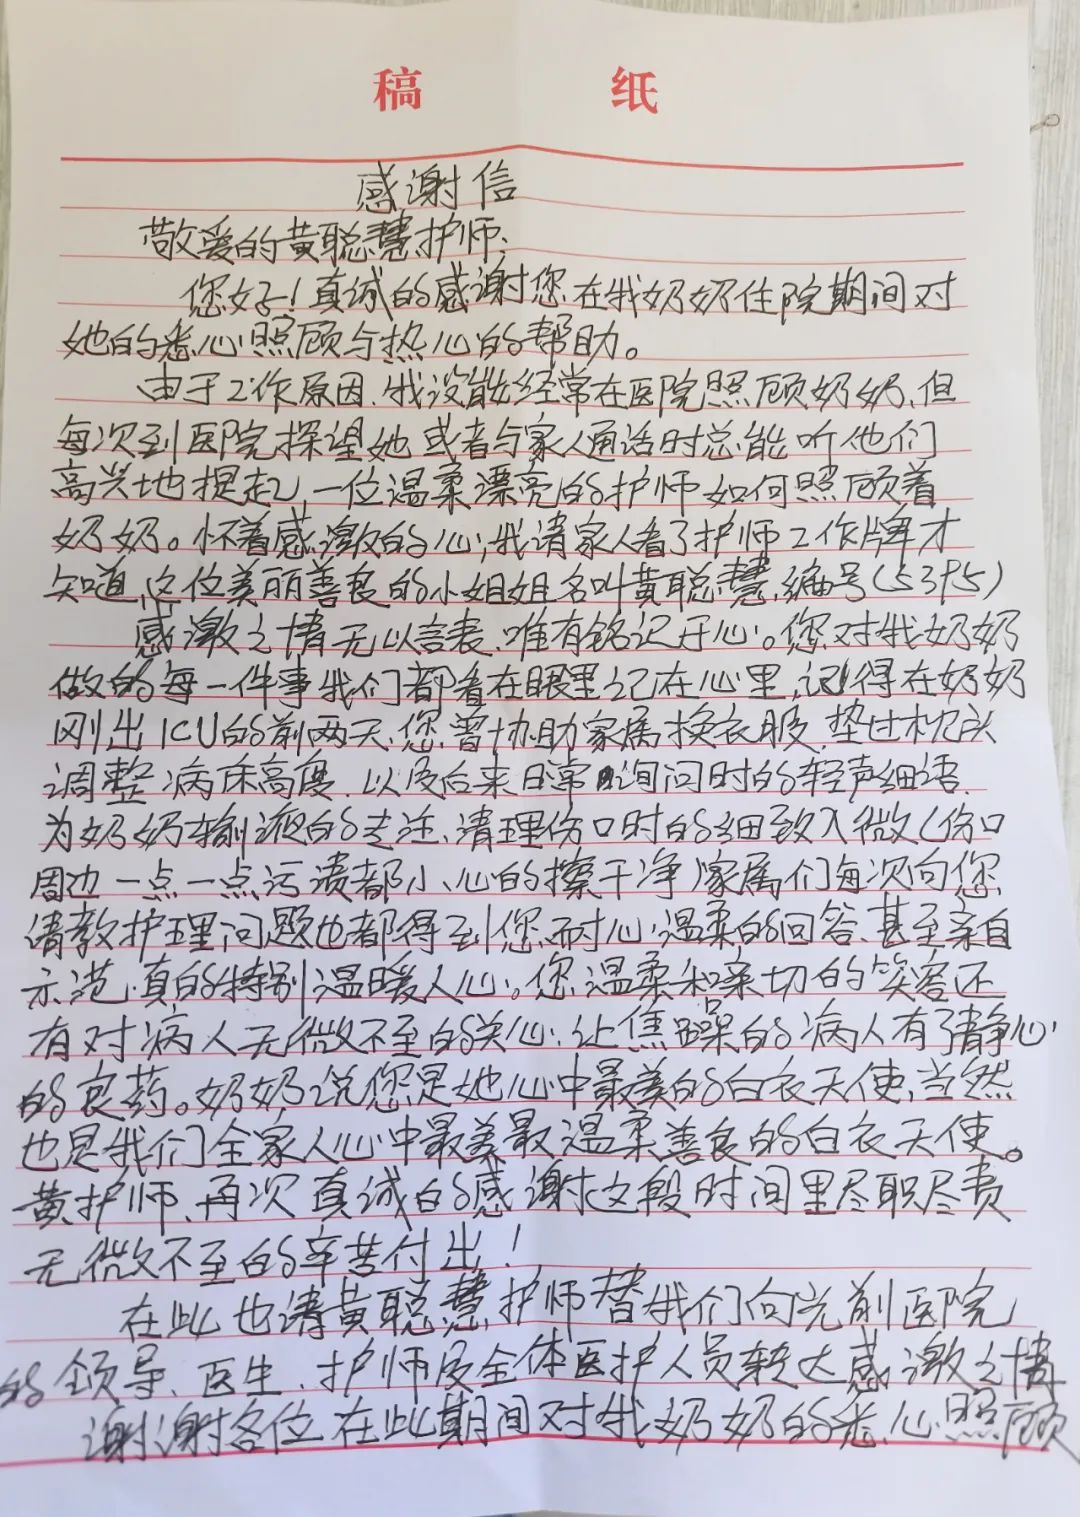 稿 纸
感谢信
敬爱的黄聪慧护师：
您好！真诚的感谢您在我奶奶住院期间对
她的悉心照顾与热心的帮助。
由于工作原因，我没能经常在医院照顾奶奶，但
每次到医院探望她或者与家人通话时总能听他们
高兴地提起，一位温柔漂亮的护师如何照顾着
奶奶。怀着感激的心，我请家人看了护师工作牌才
知道，这位美丽善良的小姐姐名叫黄聪慧，编号(5395)
感激之情无以言表，唯有铭记于心。您对我奶奶
做的每一件事我们都看在眼里记在心里，记得在奶奶
刚出ICU的前两天，您曾协助家属换衣服，垫过枕头
调整病床高度，以及后来日常询问时的轻声细语，
为奶奶输液的专注，清理伤口时的细致入微(伤口
周边一点一点污渍都小心的擦干净)家属们每次向您
请教护理问题也都得到您耐心温柔的回答，甚至亲自
示范，真的特别温暖人心。您温柔和亲切的笑容还
有对病人无微不至的关心，让焦躁的病人有了静心
的良药。奶奶说您是她心中最美的白衣天使，当然
也是我们全家人心中最美最温柔善良的白衣天使。
黄护师，再次真诚的感谢这段时间里尽职尽责
无微不至的辛苦付出！
在此也请黄聪慧护师替我们向光前医院
的领导、医生、护师及全体医护人员转达感激之情
谢谢各位在此期间对我奶奶的悉心照顾